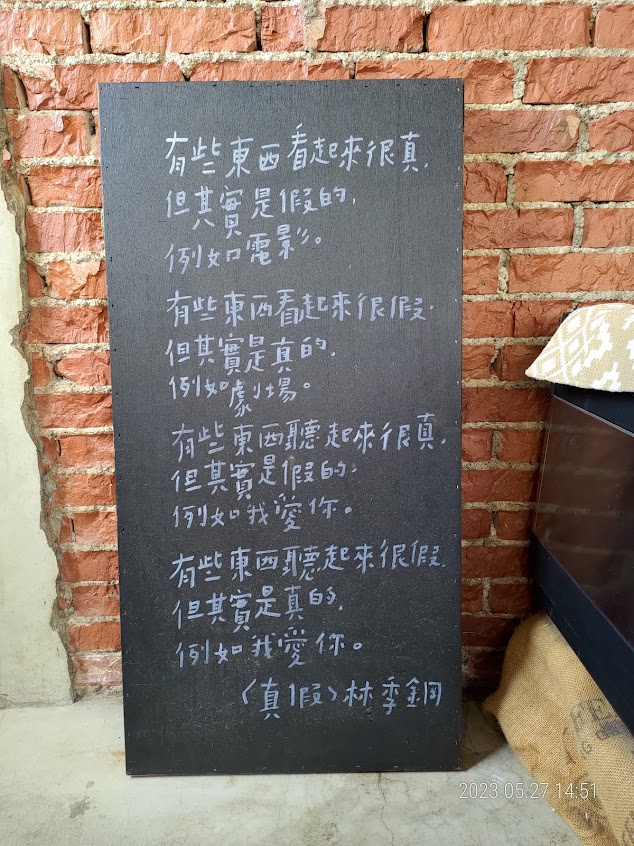 有些東西看起來很真，
但其實是假的，
例如電影。
有些東西看起來很假，
但其實是真的，
例如劇場。
有些東西聽起來很真，
但其實是假的，
例如我愛你。
有些東西聽起來很假，
但其實是真的，
例如我愛你。
〈真假〉林季鋼
2023.05.27 14:51